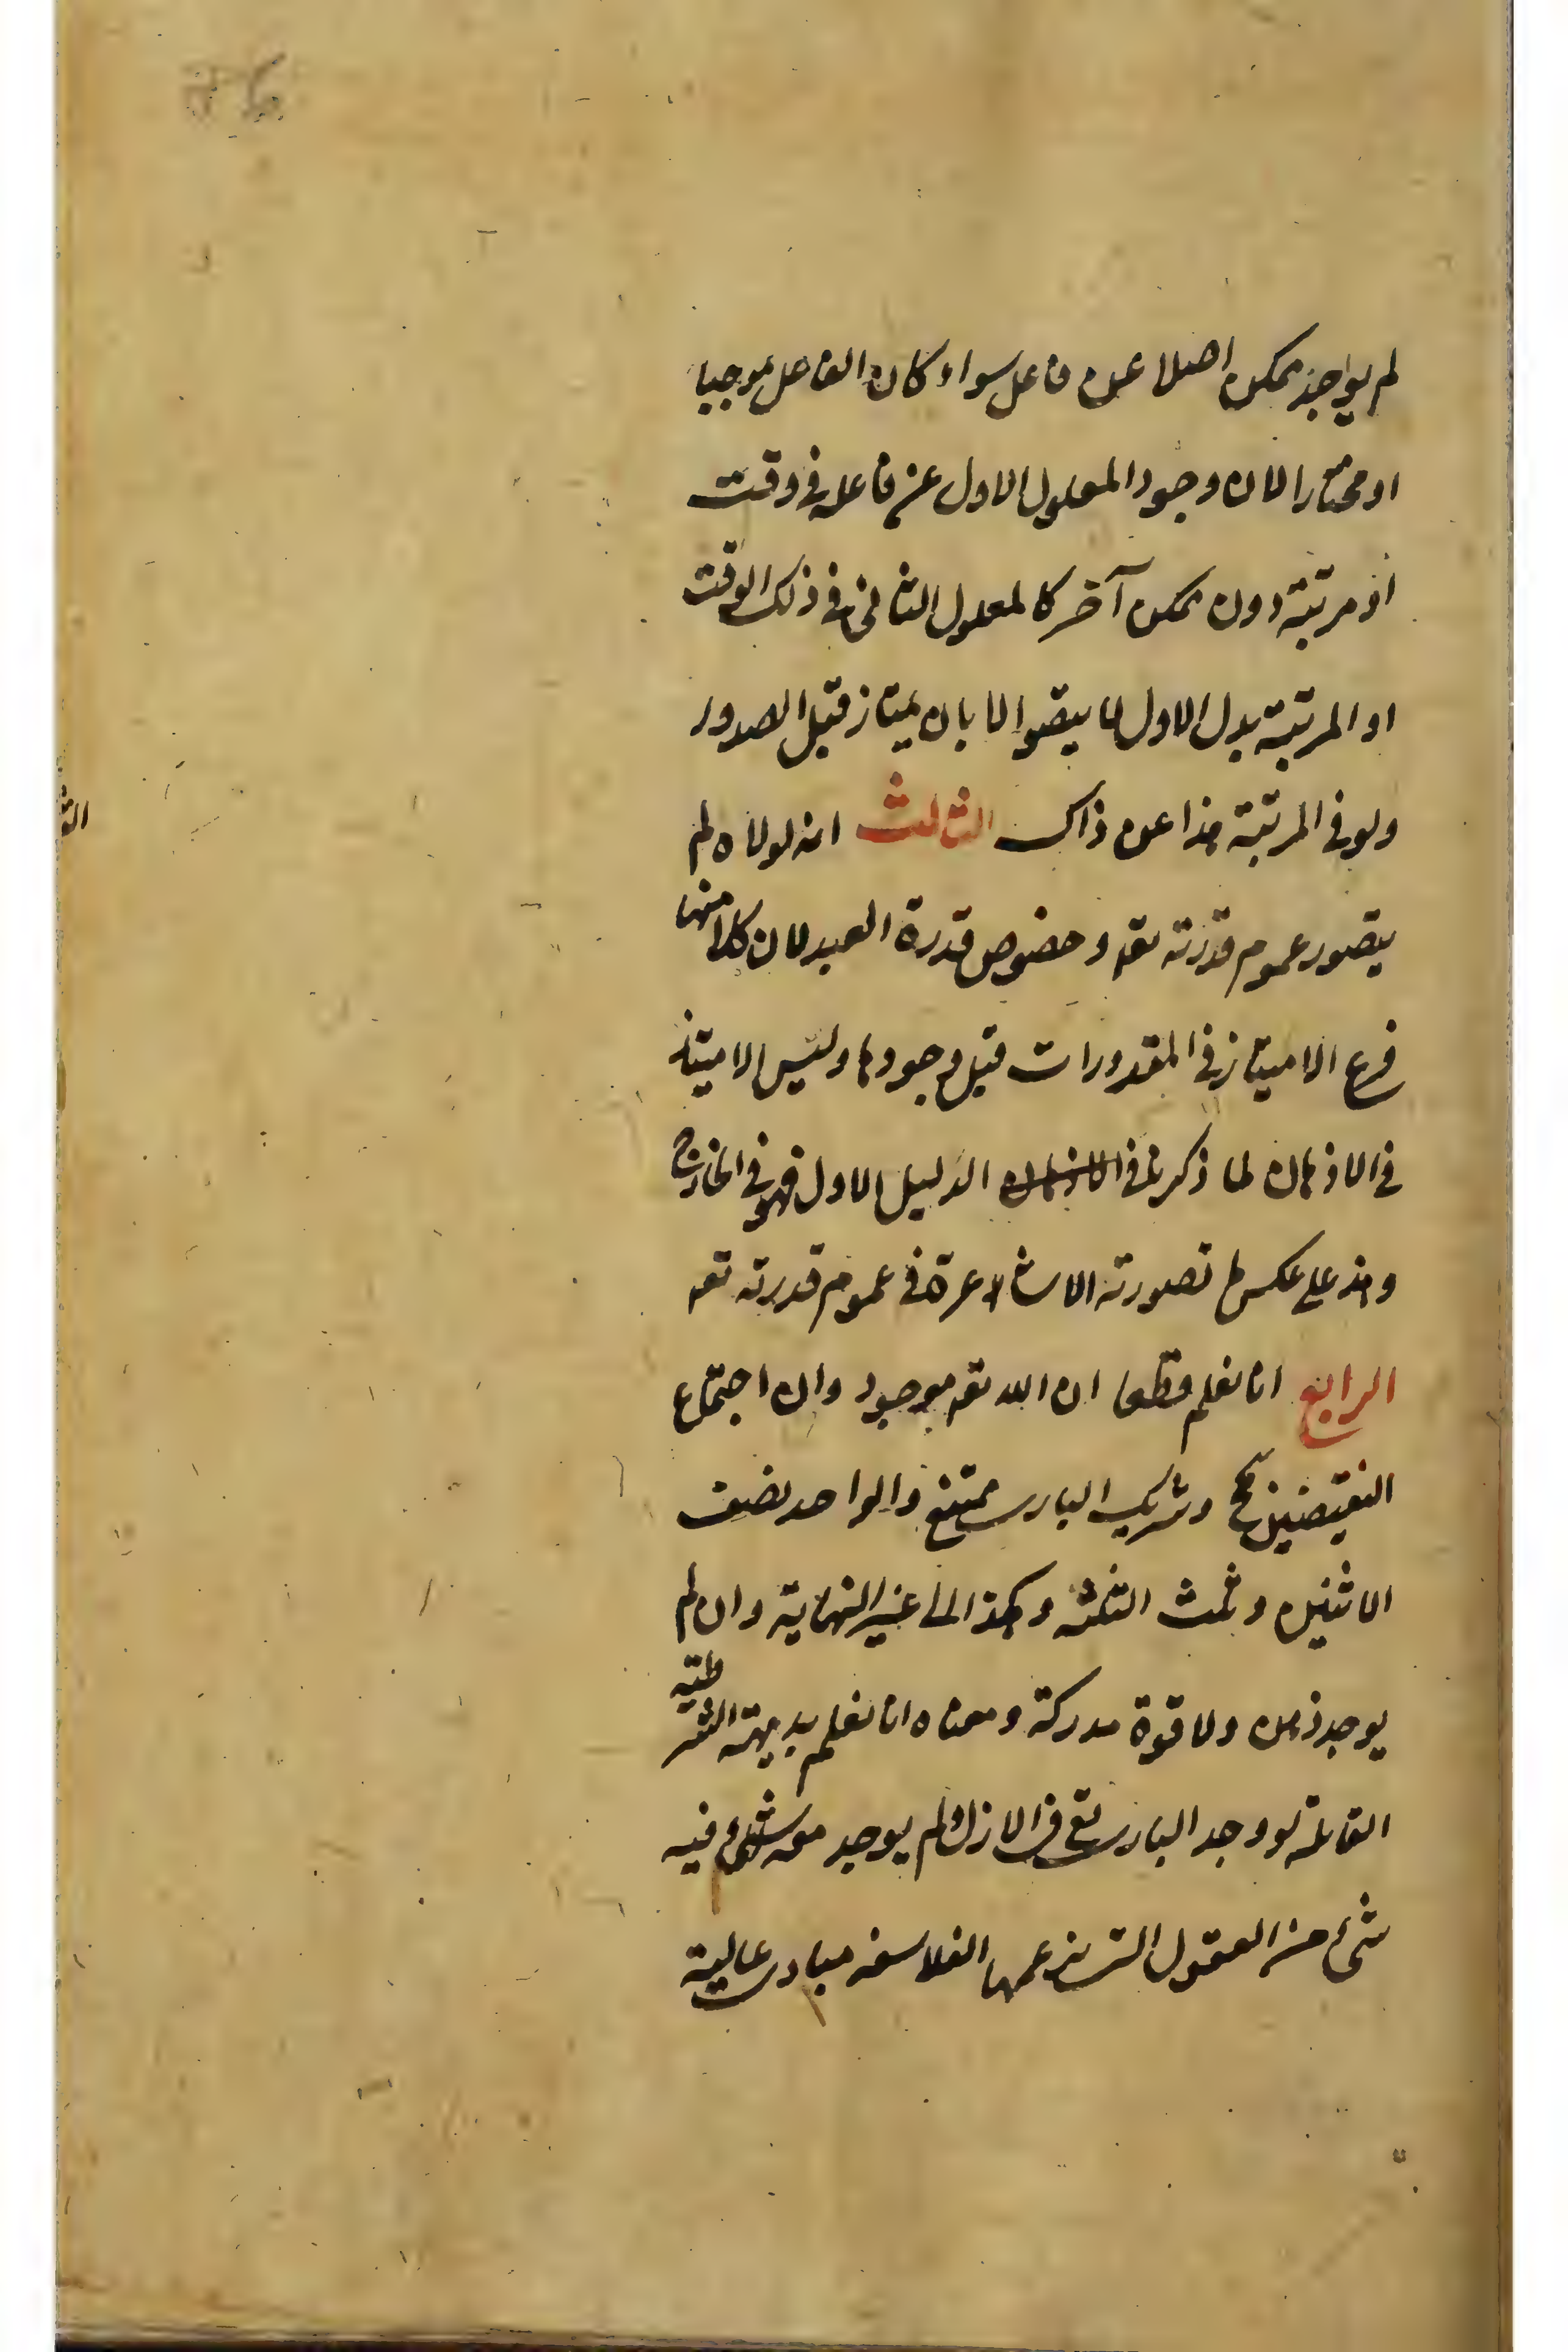 لم يوجد ممكن اصلا عن فاعل سواء كان الفاعل موجبا
او مختارا لان وجود المعلول الاول عن فاعله فى وقت
او مرتبة دون ممكن آخر كالمعلول الثانى فى ذلك الوقت
او المرتبة بدل الاول لا يتصور الا بان يمتاز قبل الصدور
ولو فى المرتبة هذا عن ذاك الثالث انه لولاه لم
يتصور عموم قدرته تعه وخصوص قدرة العبد لان كلا منهما
فرع الامتياز فى المقدورات قبل وجودها وليس الامتياز
فى الاذهان لما ذكرنا فى الدليل الاول فهو فى الخارج
وهذا على عكس ما تصورته الاشاعرة فى عموم قدرته تعه
الرابع انا نعلم قطعا ان الله تعه موجود وان اجتماع
النقيضين مح وشريك البارى ممتنع والواحد نصف
الاثنين وثلث الثلثة وهكذا الى غير النهاية وان لم
يوجد ذهن ولا قوة مدركة ومعناه انا نعلم بديهة الشرطية
القائلة لو وجد البارى تع فى الازل ولم يوجد معه شئ فيه
شئ من العقول التى يزعمها الفلاسفه مبادى عالية